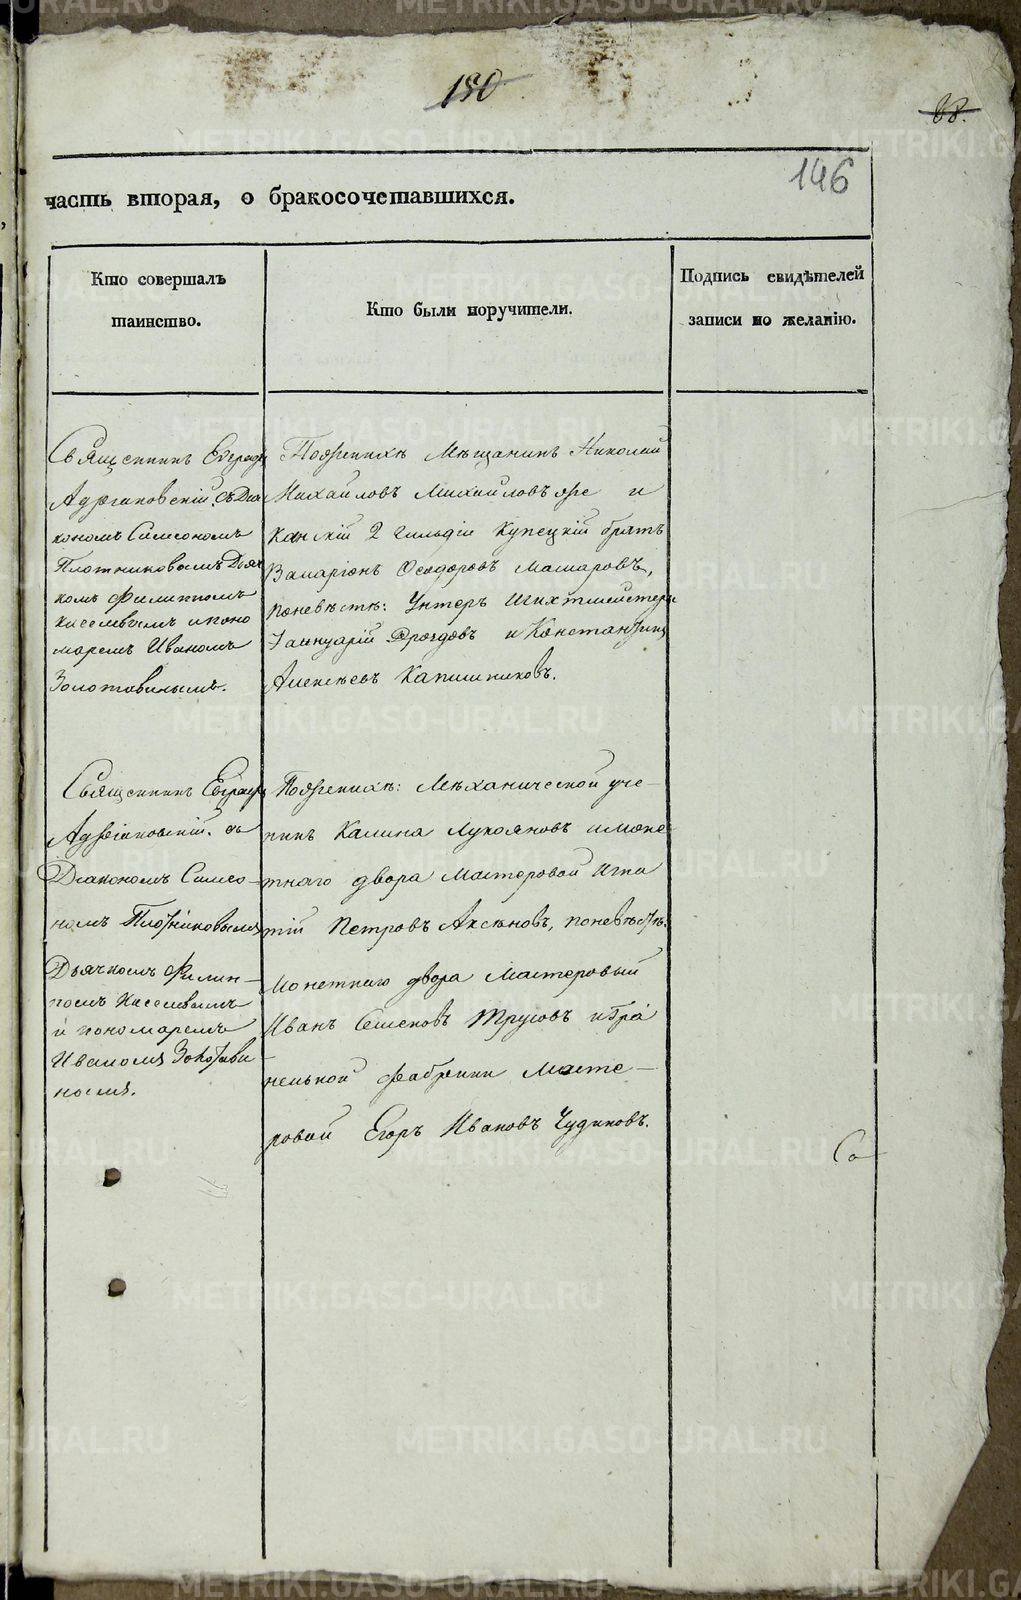 180
88.
146
часть вторая, о бракосочетавшихся.
Кто совершалъ
таинство.
Кто были поручители.
Подпись свидѣтелей
записи по желанію.
Священникъ Евграфъ
Адріановскій, съ Діа
кономъ Симеономъ
Плотниковымъ Дьяч
комъ Филиппомъ
Киселевымъ и поно
маремъ Иваномъ
Золотавинымъ.
Пожених� Мѣщанинъ Николай
Михайловъ Михайловъ же и
Канскій 2 гильдіи купецкій братъ
Ѳедоровъ Машаровъ,
поневѣстѣ: Унтеръ Шихтмейстеръ
Іаннуарій Дроздовъ и Константинъ
Алексѣевъ Калашниковъ.
Священникъ Евграфъ
Адріановскій. съ
Діакономъ Симео-
номъ Плотниковымъ
Дьячкомъ Филип-
помъ Киселевымъ
и пономаремъ
Иваномъ Золотави-
нымъ.
Поженихѣ: Мѣханической уче-
никъ Калина Лукояновъ и моне-
тнаго двора Мастеровой Игна
тій Петровъ Аксѣновъ, поневѣстѣ:
Монетнаго двора Мастеровый
Иванъ Семеновъ Трусовъ и Гра
нильной фабрики Масте-
ровой Егоръ Ивановъ Чудиновъ.
Со
METRIKI.GASO-URAL.RU